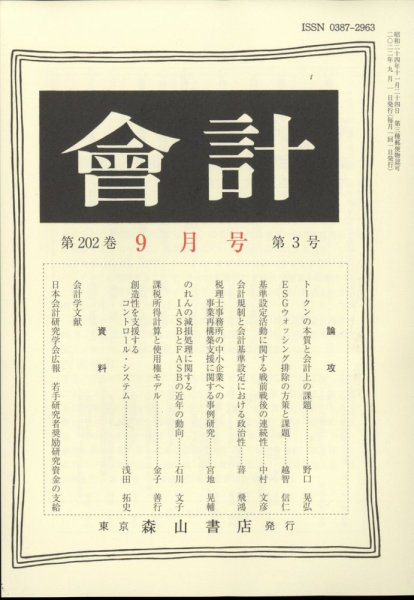 ISSN 0387-2963
昭和二十四年十一月二十四日 第三種郵便物認可
二〇二二年九月一日発行(毎月一回一日発行)
會計
第202巻 9月号 第3号
論攻
トークンの本質と会計上の課題…………野口 晃弘
ESGウォッシング排除の方策と課題………越智 信仁
基準設定活動に関する戦前戦後の連続性……中村 文彦
会計規制と会計基準設定における政治性……蔣 飛鴻
税理士事務所の中小企業への
事業再構築支援に関する事例研究………宮地 晃輔
のれんの減損処理に関する
IASBとFASBの近年の動向………石川 文子
課税所得計算と使用権モデル…………金子 善行
創造性を支援する
コントロール・システム…………浅田 拓史
資料
会計学文献
日本会計研究学会広報 若手研究者奨励研究資金の支給
東京 森山書店 発行